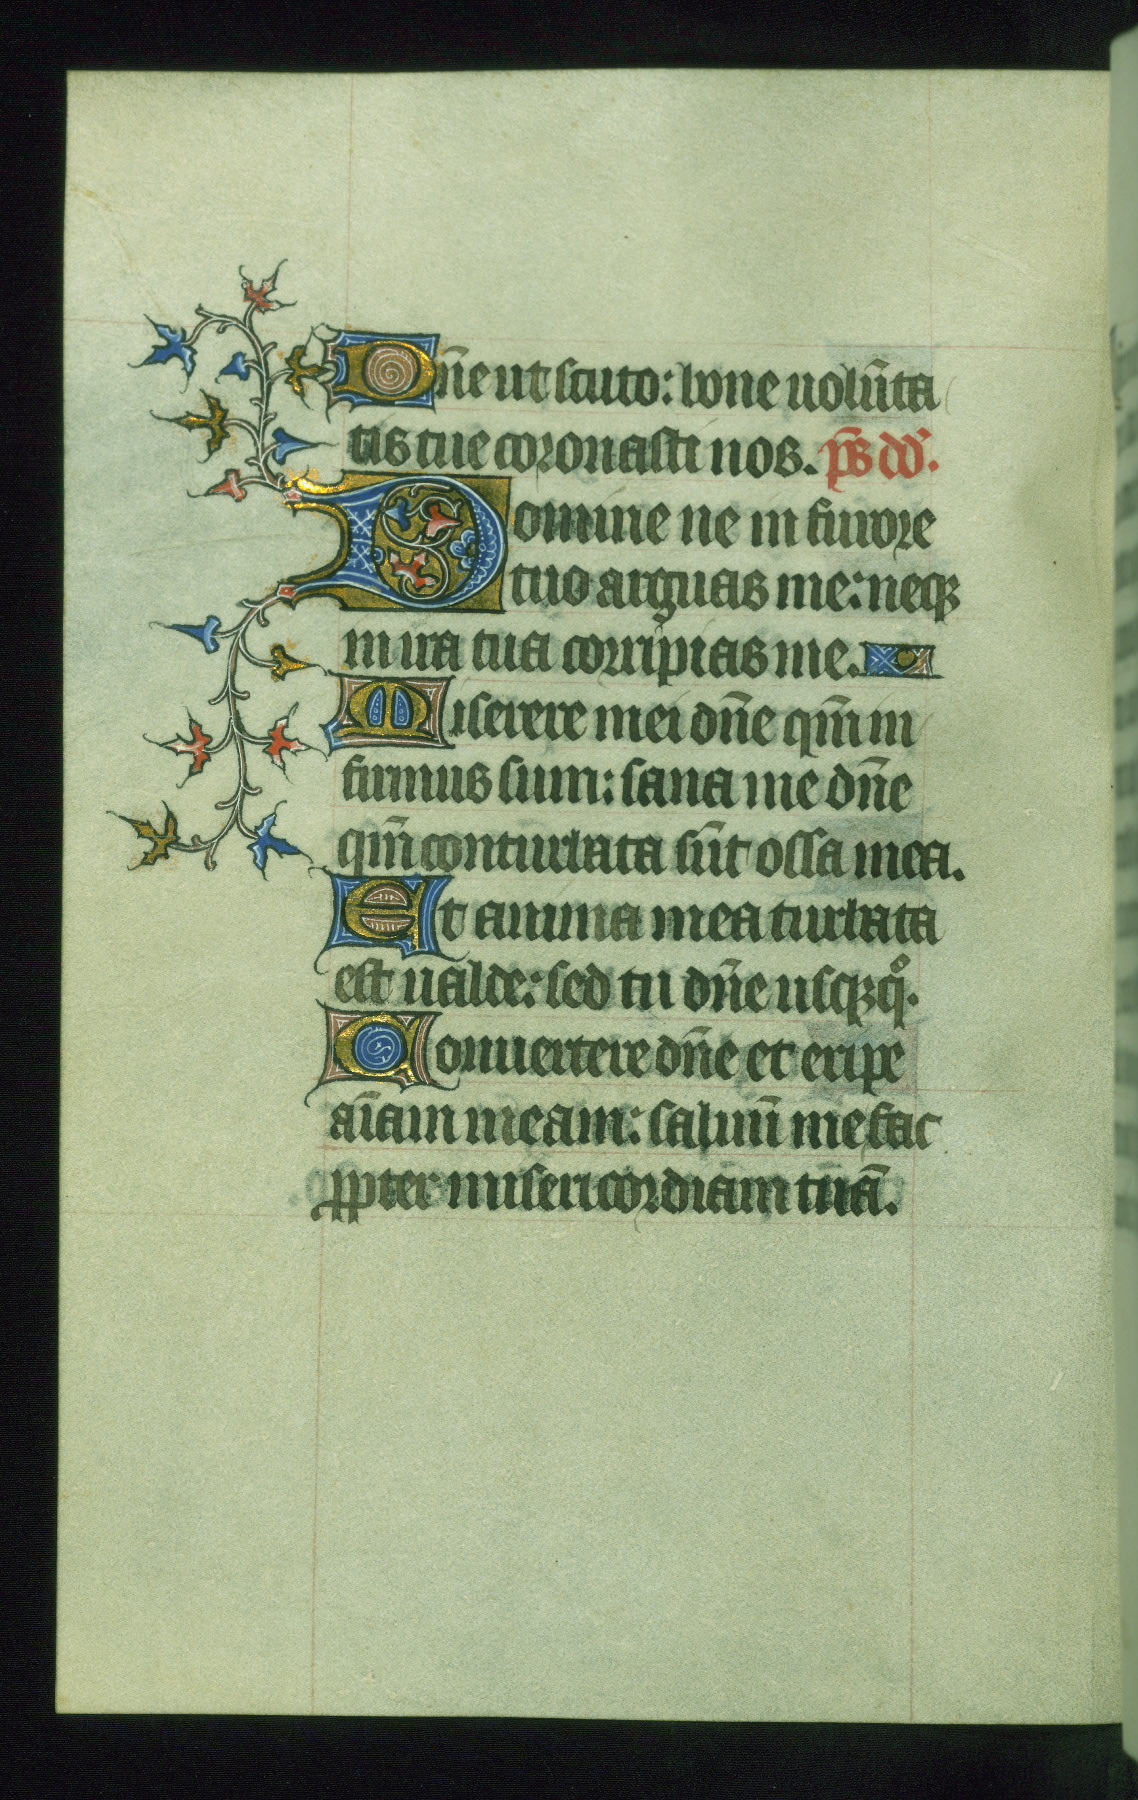 Dn̄e ut scuto: bone uolūta
tis tue coronasti nos. p̄s dd̕.
Domine ne in furore
tuo arguas me: neqꝫ
in ira tua corripias me.
Miserere mei dn̄e qm̄ in
firmus sum: sana me dn̄e
qm̄ conturbata sūt ossa mea.
Et anima mea turbata
est ualde: sed tu dn̄e usqꝫqͦ.
Conuertere dn̄e et eripe
aīam meam: saluū me fac
ꝓpter misericordiam tuā.